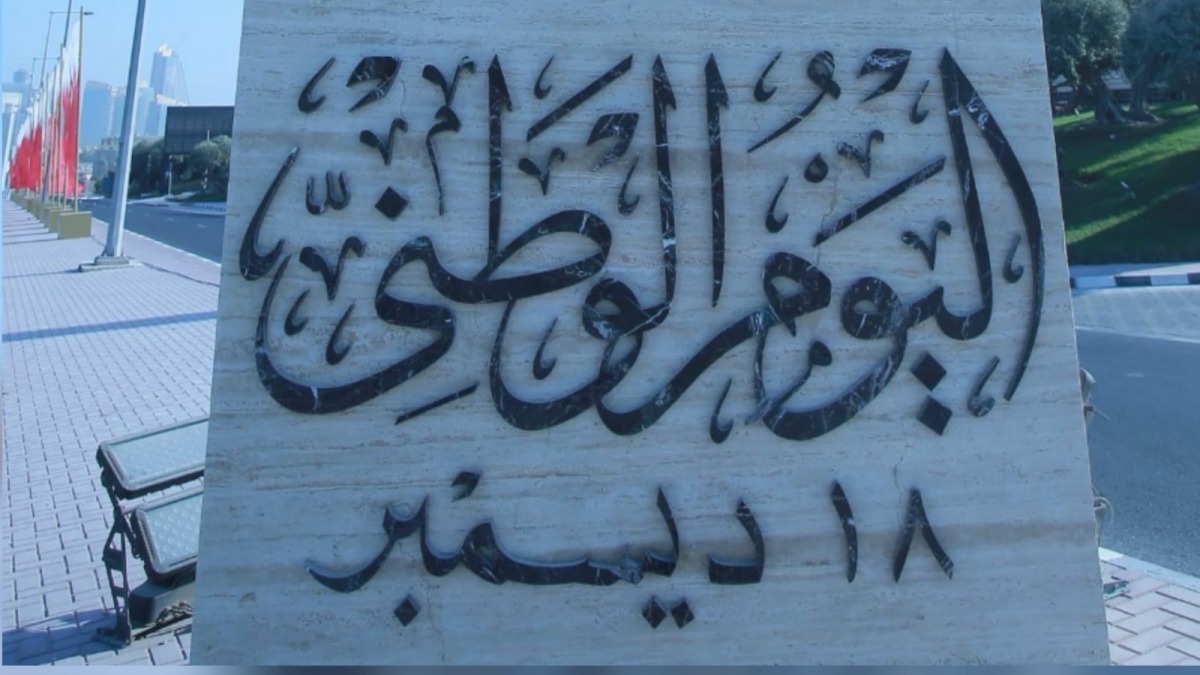 اليَوْمُ الوَطَنِيّ
١٨ ديسمبر